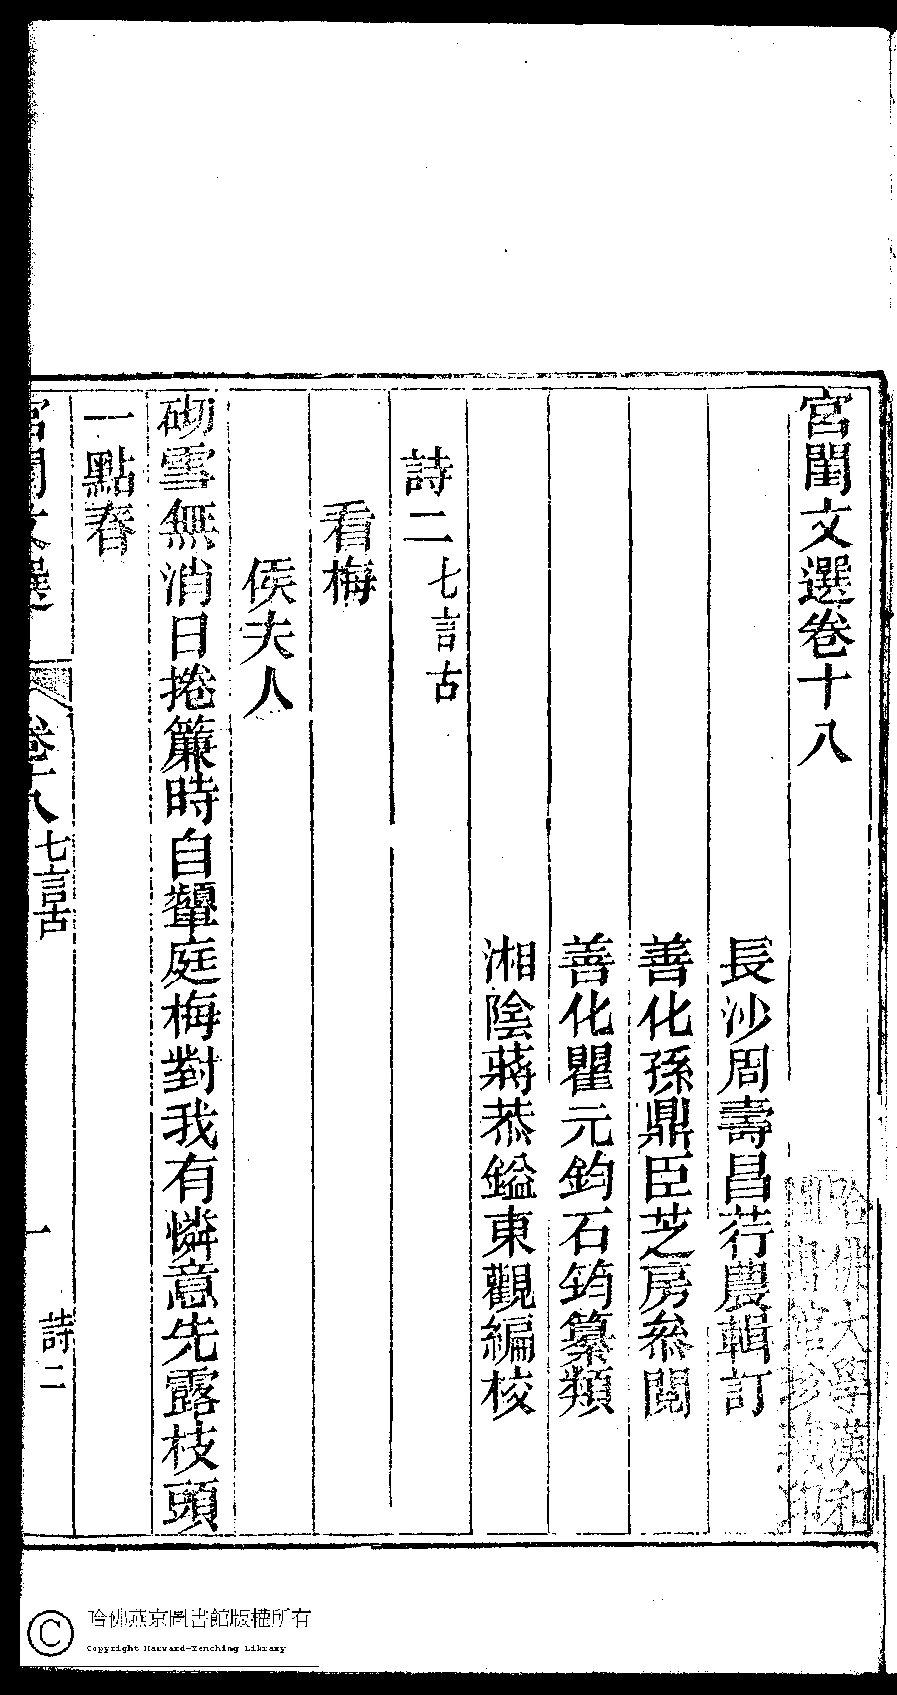 宮閨文選卷十八
長沙周壽昌荇農輯訂
善化孫鼎臣芝房叅閱
善化瞿元鈞石筠纂類
湘陰蔣恭鎰東觀編校
詩二 七言古
看梅
侯夫人
砌雪無消日捲簾時自顰庭梅對我有憐意先露枝頭
一點春
宮閨文選 卷十八 七言古 一 詩二
哈佛大學漢和
圖書館珍藏印
哈佛燕京圖書館版權所有
Copyright Harvard-Yenching Library